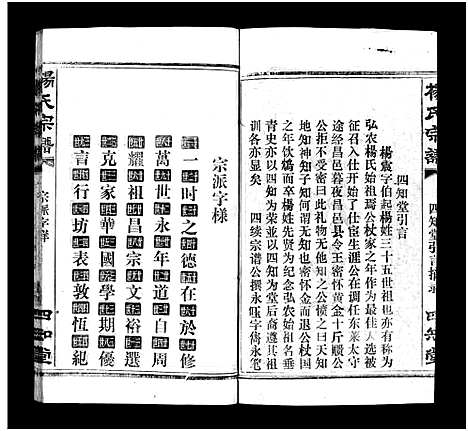 楊氏宗譜
四知堂引言
四知堂
四知堂引言
楊震字伯起楊姓三十五世祖也亦有称为
弘农楊氏始祖焉公杖家之年作为最佳人选被
征召入仕开始了仕宦生涯公在调任东莱太守
途经昌邑暮夜昌邑县令王密怀黄金十斤赎公
公拒不受密曰此礼物无他知之公愤之曰天知
神知子知我知何谓无知密惭而退公杖国
之年饮鸩而卒楊姓先贤为纪念弘农始祖名垂
青史亦以四知为荣並以四知为堂后裔遵其祖
训各亦显矣
四续宗谱公撰永
宗派字様
一時之德在於修
萬世永年道自周
耀祖昌宗文裕選
克家華國學期優
言行坊表敦恆紀
楊氏宗譜
宗派字様
四知堂